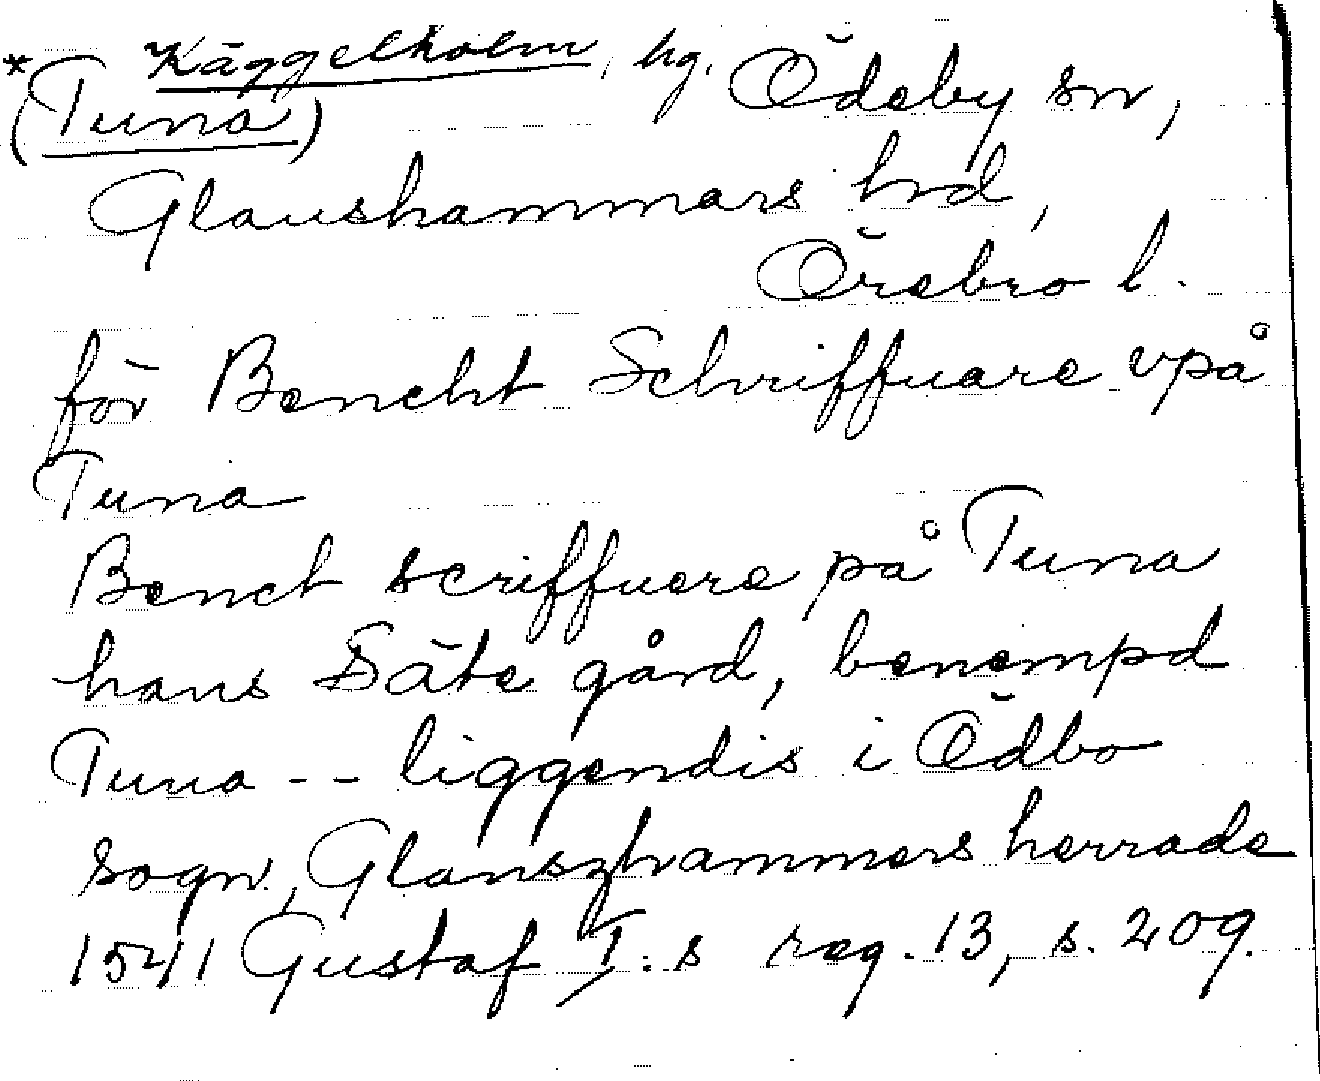 * Käggelholm, hg. Ödeby sn,
(Tuna)
Glanshammars hrd,
Örebro l.
för Bencht Schriffuare vpå
Tuna
Benct scriffuere på Tuna
hans Säte gård, benempd
Tuna -- liggendis i Ödbo
sogn, Glanszhammers herrade
1541 Gustaf I.s reg. 13, s. 209.